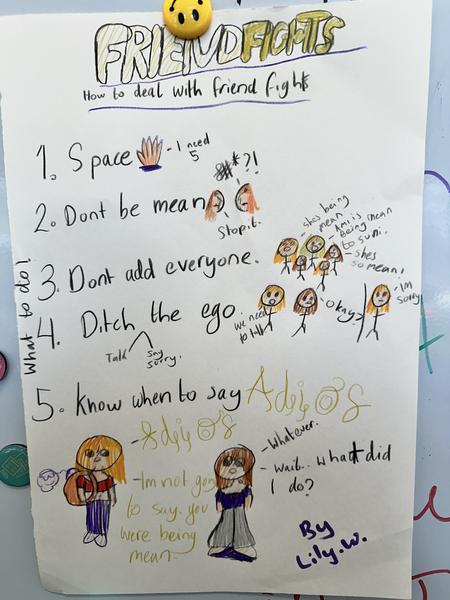 FRIENDFIGHTS
How to deal with friend fights
What to do!
1. Space - I need 5
2. Dont be mean
**?!
Stop it.
3. Dont add everyone.
shes being mean
- Ami is being mean to suni.
- shes so mean!
4. Ditch the ego.
Talk
Say sorry.
we need to talk
- okay?
- Im sorry
5. Know when to say Adios
- Adios
- Whatever.
- Wait.. what did I do?
- Im not going
to say. you
were being
mean.
By
Lily.W.